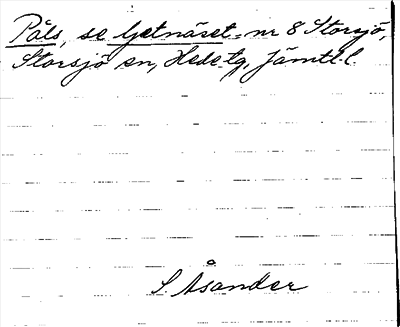 Påls, se Getnäset = nr 8 Storsjö,
Storsjö sn, Hede tg, Jämtl. l.
S. Åsander